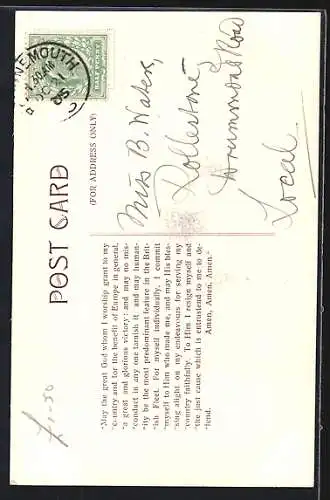 POST CARD
(FOR ADDRESS ONLY)
HALFPENNY
"May the great God whom I worship grant to my
"country and for the benefit of Europe in general,
"a great and glorious victory: and may no mis-
"conduct in any one tarnish it and may human-
"ity be the most predominant feature in the Brit-
"ish Fleet. For myself individually, I commit
"myself to Him who made me, and may His bles-
"sing alight on my endeavours for serving my
"country faithfully. To Him I resign myself and
"the just cause which is entrusted to me to de-
"fend. Amen, Amen, Amen."
Miss B.
Rollestone
Drummond Road
Local
£1-50